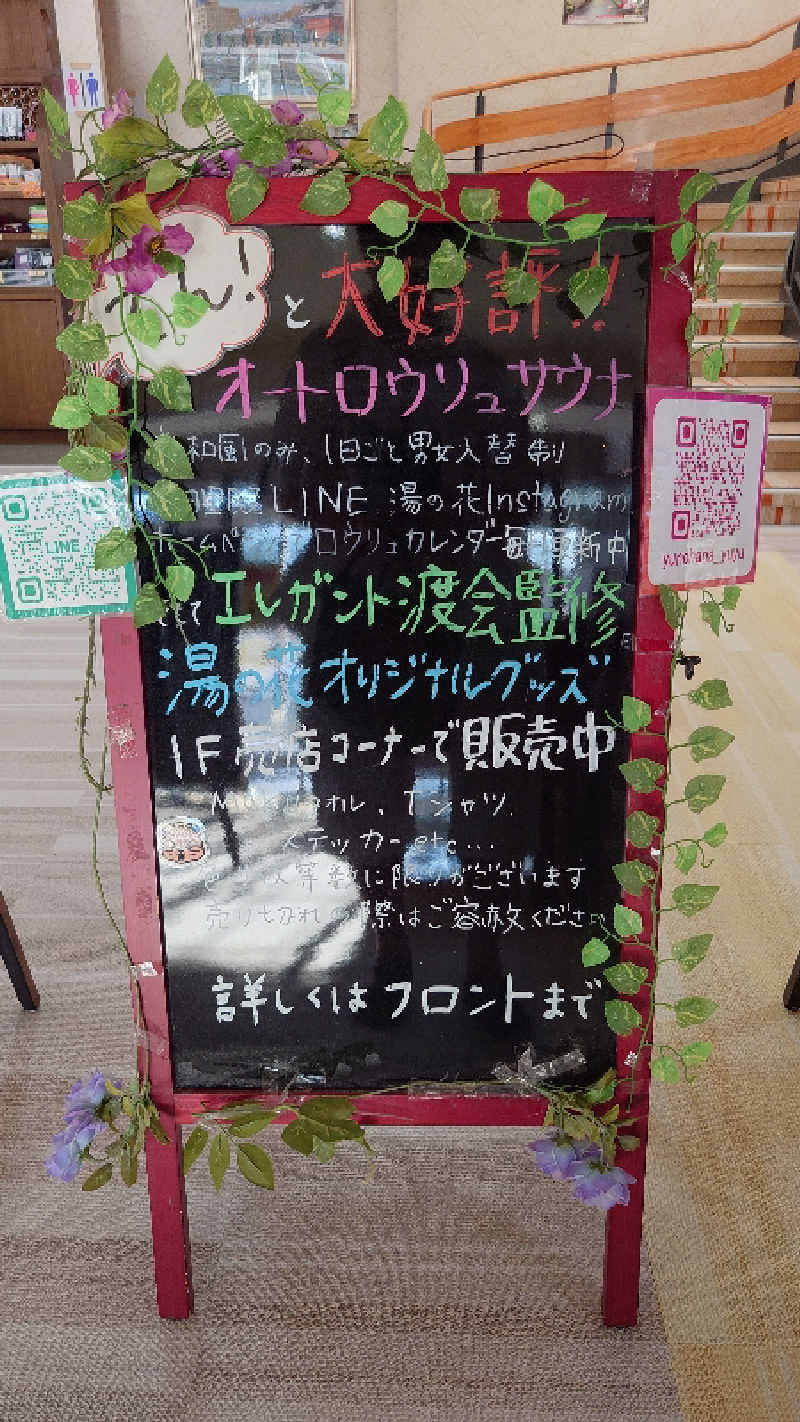 ん!
と 大好評!!
オートロウリュサウナ
和風のみ、1日ごと男女入替制
LINE 湯の花Instagram
ロウリュカレンダー毎日更新中
LINE
yunohana_yuyu
さて エレガント渡会監修
湯の花オリジナルグッズ
1F売店コーナーで販売中
Tシャツ、
ステッカーetc...
等数に限りがございます
売り切れの際はご容赦ください
詳しくはフロントまで